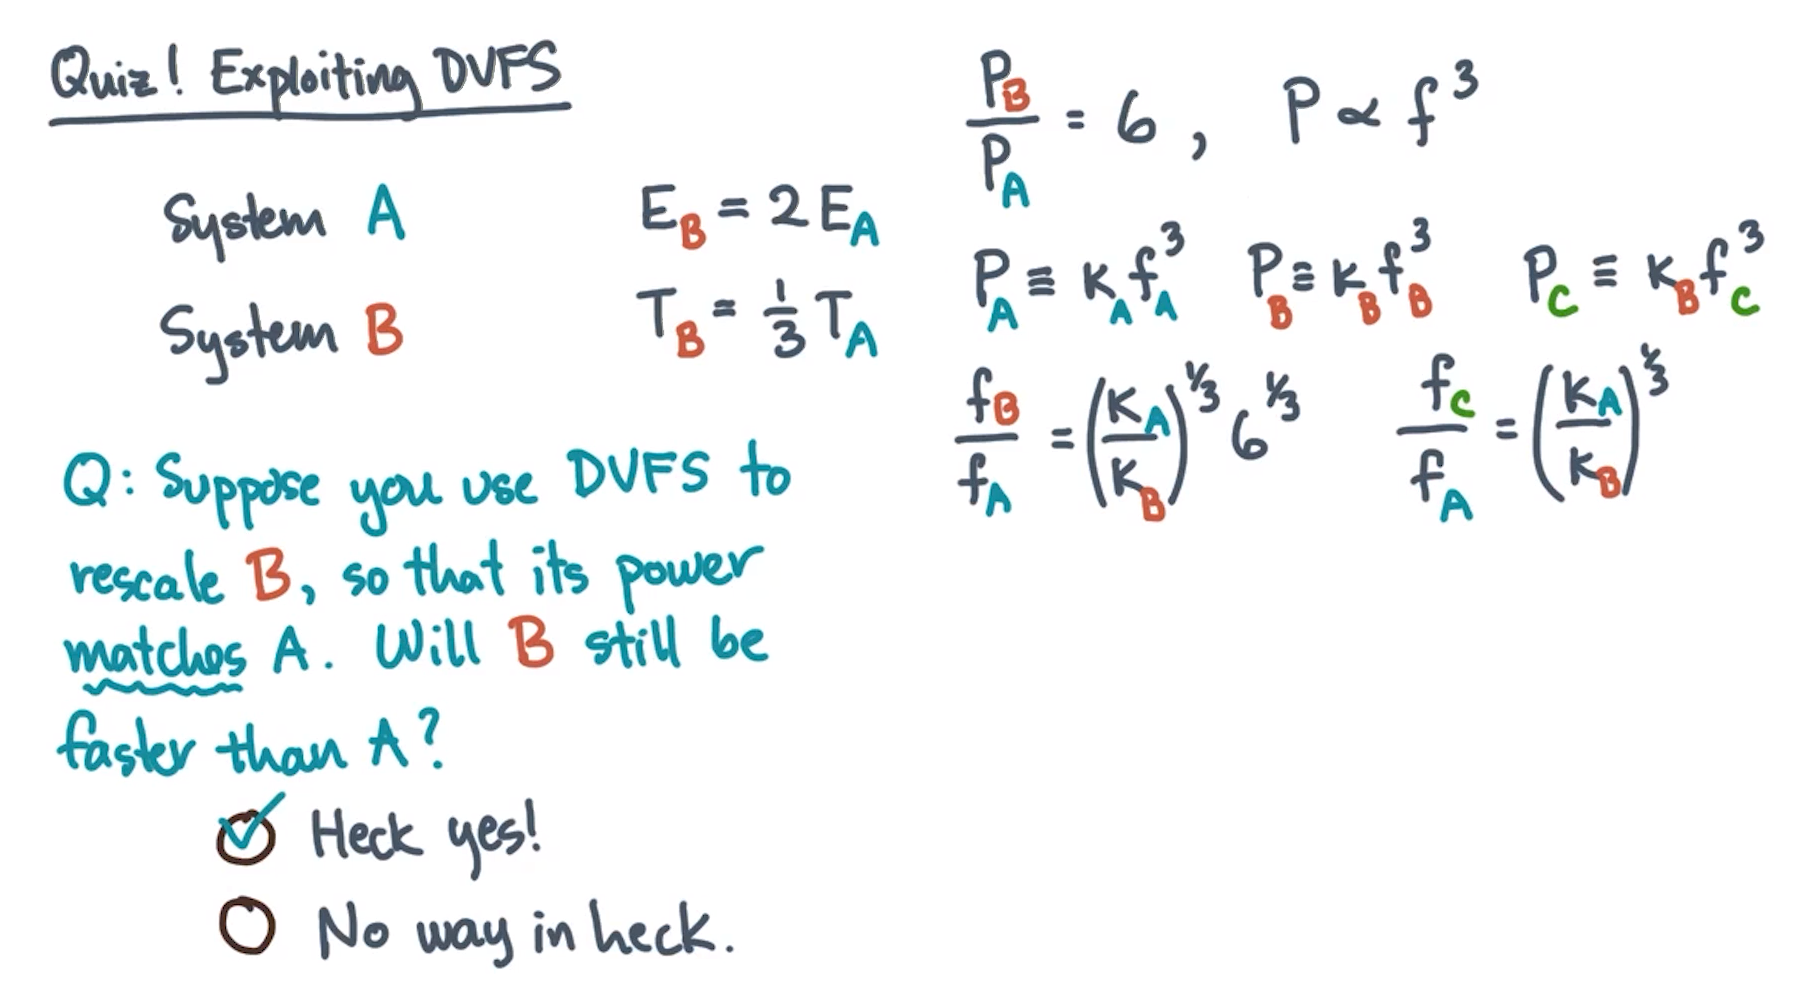 Quiz! Exploiting DVFS
System A
System B
E_B = 2 E_A
T_B = 1/3 T_A
Q: Suppose you use DVFS to
rescale B, so that its power
matches A. Will B still be
faster than A?
✓ Heck yes!
No way in heck.
P_B / P_A = 6, P ∝ f^3
P_A ≡ k_A f_A^3 P_B ≡ k_B f_B^3 P_C ≡ k_B f_C^3
f_B / f_A = (k_A / k_B)^1/3 6^1/3 f_C / f_A = (k_A / k_B)^1/3